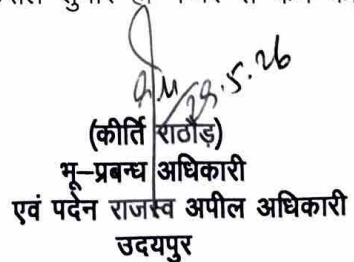 28.5.26
(कीर्ति राठौड़)
भू-प्रबन्ध अधिकारी
एवं पदेन राजस्व अपील अधिकारी
उदयपुर